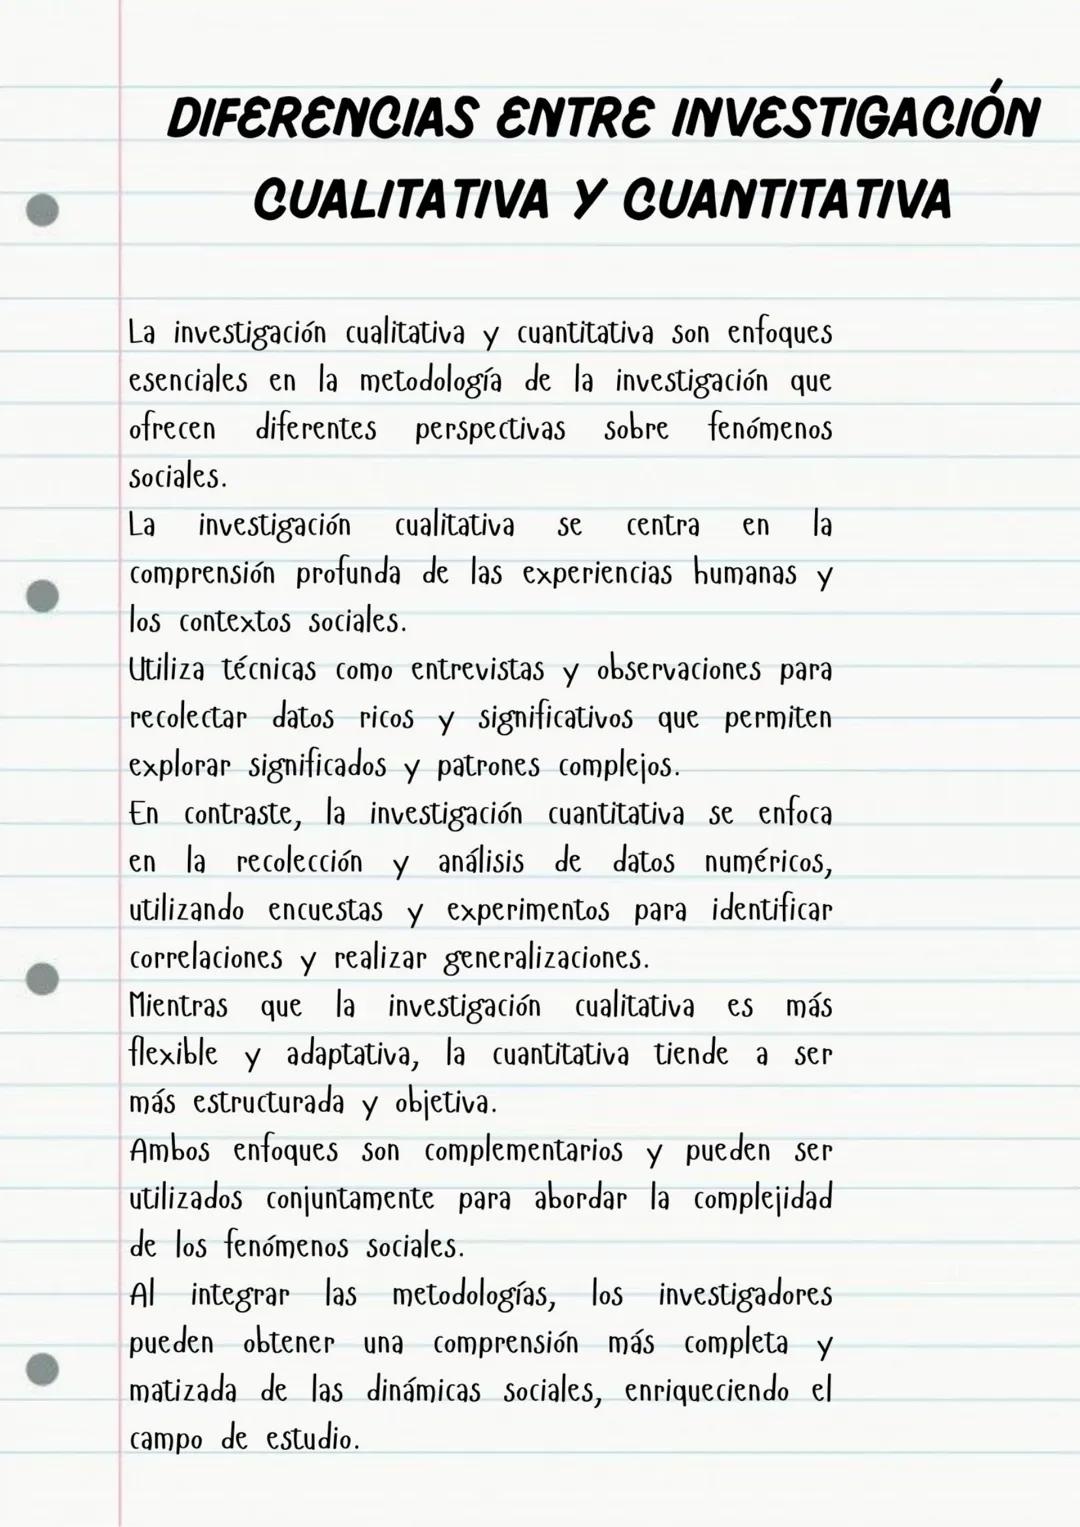 DIFERENCIAS ENTRE INVESTIGACIÓN
CUALITATIVA Y CUANTITATIVA
La investigación cualitativa y cuantitativa son enfoques
esenciales en la metodología de la investigación que
ofrecen diferentes perspectivas sobre fenómenos
sociales.
La investigación cualitativa se centra en la
comprensión profunda de las experiencias humanas y
los contextos sociales.
Utiliza técnicas como entrevistas y observaciones para
recolectar datos ricos y significativos que permiten
explorar significados y patrones complejos.
En contraste, la investigación cuantitativa se enfoca
en la recolección y análisis de datos numéricos,
utilizando encuestas y experimentos para identificar
correlaciones y realizar generalizaciones.
Mientras que la investigación cualitativa es más
flexible y adaptativa, la cuantitativa tiende a ser
más estructurada y objetiva.
Ambos enfoques son complementarios y pueden ser
utilizados conjuntamente para abordar la complejidad
de los fenómenos sociales.
Al integrar las metodologías, los investigadores
pueden obtener una comprensión más completa y
matizada de las dinámicas sociales, enriqueciendo el
campo de estudio.